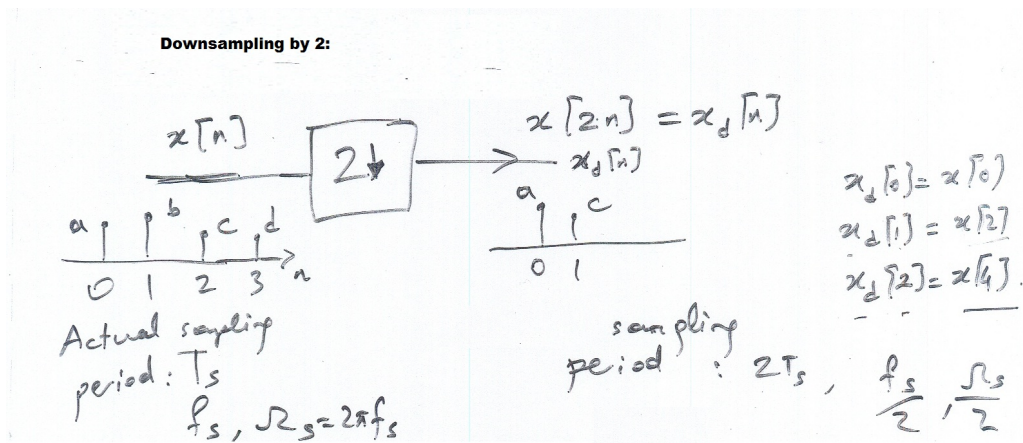 Downsampling by 2:
x[n]
2↓
x[2n] = x_d[n]
x_d[n]
a b c d
0 1 2 3 n
a c
0 1
x_d[0] = x[0]
x_d[1] = x[2]
x_d[2] = x[4].
Actual sampling
period: Ts
fs, Ωs=2πfs
sampling
period : 2Ts, fs/2, Ωs/2